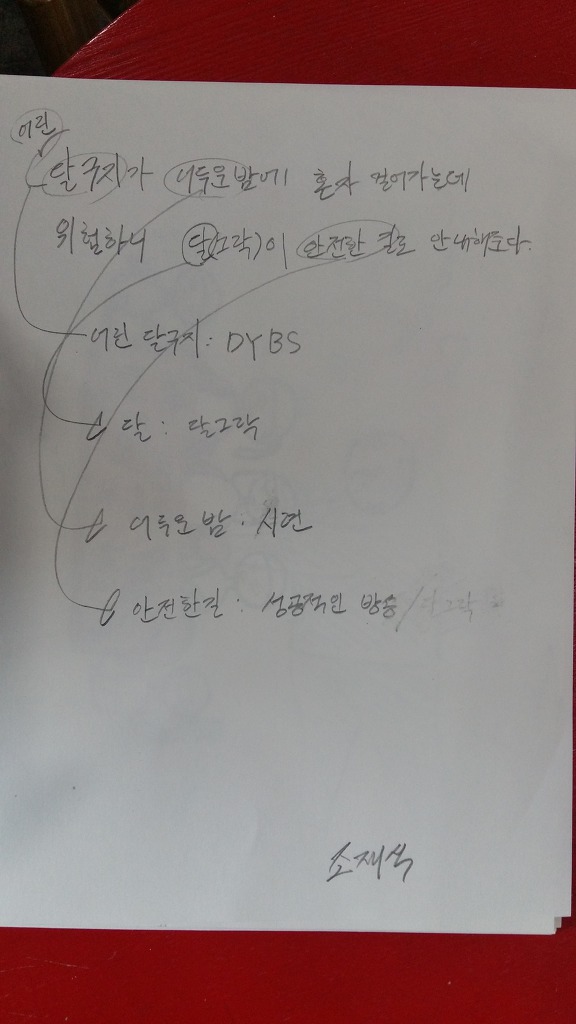 어린
달구지가 어두운밤에 혼자 걸어가는데
위험하니 달(그락)이 안전한 길로 안내해준다.
어린 달구지: DYBS
달 : 달그락
어두운 밤 · 시련
안전한길 : 성공적인 방송 / 달그락
소재식